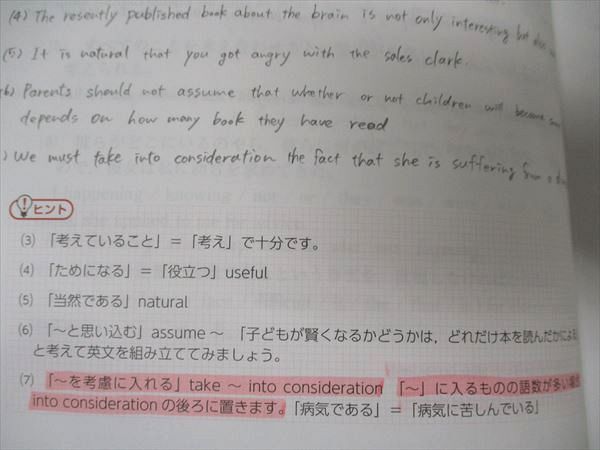 (4) The resently published book about the brain is not only interesting but
(5) It is natural that you got angry with the sales clark.
(6) Parents should not assume that whether or not children will become
depends on how many book they have read
) We must take into consideration the fact that she is suffering from a
ヒント
(3) 「考えていること」=「考え」で十分です。
(4) 「ためになる」=「役立つ」useful
(5) 「当然である」natural
(6) 「~と思い込む」assume ~ 「子どもが賢くなるかどうかは,どれだけ本を読んだかによる
と考えて英文を組み立ててみましょう。
(7) 「~を考慮に入れる」take ~ into consideration 「~」に入るものの語数が多い場合
into consideration の後ろに置きます。「病気である」=「病気に苦しんでいる」